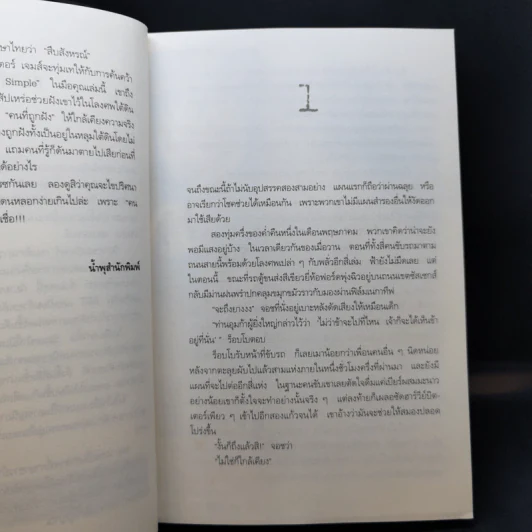 ษาไทยว่า "สืบสังหรณ์"
ตอร์ เจมส์จะทุ่มเทให้กับการค้นคว้า
Simple" ในมือคุณเล่มนี้ เขาถึง
สัปเหร่อช่วยฝังเขาไว้ในโลงศพใต้ดิน
"คนที่ถูกฝัง" ให้ใกล้เคียงความจริง
องถูกฝังทั้งเป็นอยู่ในหลุมใต้ดินโดยไม่
แถมคนที่รู้ก็ดันมาตายไปเสียก่อนที่
ด้อย่างไร
รซกันเลย ลองดูสิว่าคุณจะไขปริศนา
ตนหลอกง่ายเกินไปล่ะ เพราะ "คน
เชื่อ!!!
น้ำพุสำนักพิมพ์
1
จนถึงขณะนี้ถ้าไม่นับอุปสรรคสองสามอย่าง แผนแรกก็ถือว่าผ่านฉลุย หรือ
อาจเรียกว่าโชคช่วยได้เหมือนกัน เพราะพวกเขาไม่มีแผนสำรองอื่นให้งัดออก
มาใช้เสียด้วย
สองทุ่มครึ่งของค่ำคืนหนึ่งในเดือนพฤษภาคม พวกเขาคิดว่าน่าจะยัง
พอมีแสงอยู่บ้าง ในเวลาเดียวกันของเมื่อวาน ตอนที่ทั้งสี่คนขับรถมาตาม
ถนนสายนี้พร้อมด้วยโลงศพเปล่า ๆ กับพลั่วอีกสี่เล่ม ฟ้ายังไม่มืดเลย แต่
ในตอนนี้ ขณะที่รถตู้ขนส่งสีขาวยี่ห้อฟอร์ดพุ่งฉิวอยู่บนถนนเขตซัสเซกส์
กลับมีม่านฝนพรำปกคลุมขมุกขมัวราวกับมองผ่านฟิล์มเนกาทีฟ
"จะถึงยางงง" จอชที่นั่งอยู่เบาะหลังดัดเสียงให้เหมือนเด็ก
"ท่านอูมก้าผู้ยิ่งใหญ่กล่าวไว้ว่า 'ไม่ว่าข้าจะไปที่ไหน เจ้าก็จะได้เห็นข้า
อยู่ที่นั่น' " ร็อบโบตอบ
ร็อบโบรับหน้าที่ขับรถ ก็เลยเมาน้อยกว่าเพื่อนคนอื่น ๆ นิดหน่อย
หลังจากตะลุยผับไปแล้วสามแห่งภายในหนึ่งชั่วโมงครึ่งที่ผ่านมา และยังมี
แผนที่จะไปต่ออีกสี่แห่ง ในฐานะคนขับเขาเลยตัดใจดื่มแค่เบียร์ผสมมะนาว
อย่างน้อยเขาก็ตั้งใจจะทำอย่างนั้นจริง ๆ แต่ลงท้ายก็เผลอซัดฮาร์วีย์บิต-
เตอร์เพียว ๆ เข้าไปอีกสองแก้วจนได้ เขาอ้างว่ามันจะช่วยให้สมองปลอด
โปร่งขึ้น
"งั้นก็ถึงแล้วสิ!" จอชว่า
"ไม่ใช่ก็ใกล้เคียง"